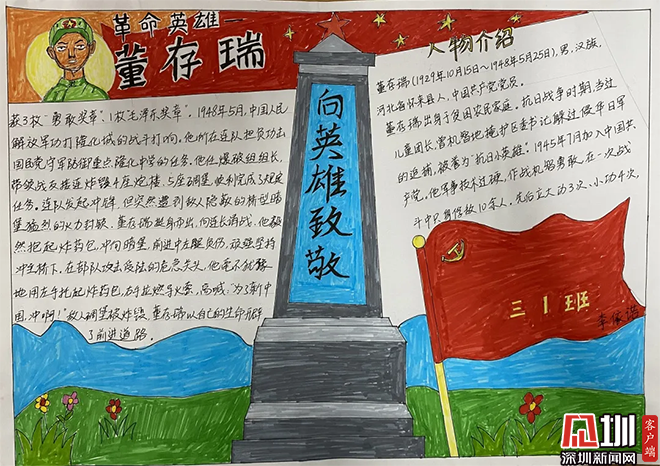 革命英雄—
董存瑞
获3枚“勇敢奖章”、1枚“毛泽东奖章”。1948年5月,中国人民
解放军攻打隆化城的战斗打响。他所在连队担负攻击
国民党守军防御重点隆化中学的任务。他任爆破组组长,
带领战友接连炸毁4座炮楼、5座碉堡,胜利完成了规定
任务。连队发起冲锋,但突然遭到敌人隐蔽的桥型暗
堡猛烈的火力封锁。董存瑞挺身而出,向连长请战。他毅
然抱起炸药包,冲向暗堡,前进中左腿负伤,顽强坚持
冲至桥下。在部队攻击受阻的危急关头,他毫不犹豫
地用左手托起炸药包,右手拉燃导火索,高喊:“为了新中
国,冲啊!”敌人碉堡被炸毁,董存瑞以自己的生命开辟
了前进道路。
向英雄致敬
人物介绍
董存瑞(1929年10月15日~1948年5月25日),男,汉族,
河北省怀来县人,中国共产党党员。
董存瑞出身于贫困农民家庭。抗日战争时期当过
儿童团长,曾机智地掩护区委书记躲过侵华日军
的追捕,被誉为“抗日小英雄”。1945年7月加入中国共
产党。他军事技术过硬,作战机智勇敢,在一次战
斗中只身俘敌10余人,先后立大功3次、小功4次,
三1班
深圳新闻网
客户端